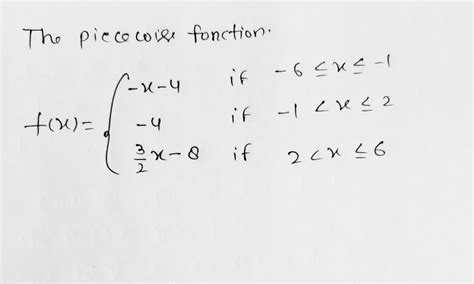 The piececoise fonction.
-x-4 if -6 ≤ x ≤ -1
f(x) = { -4 if -1 < x ≤ 2
3/2 x - 8 if 2 < x ≤ 6